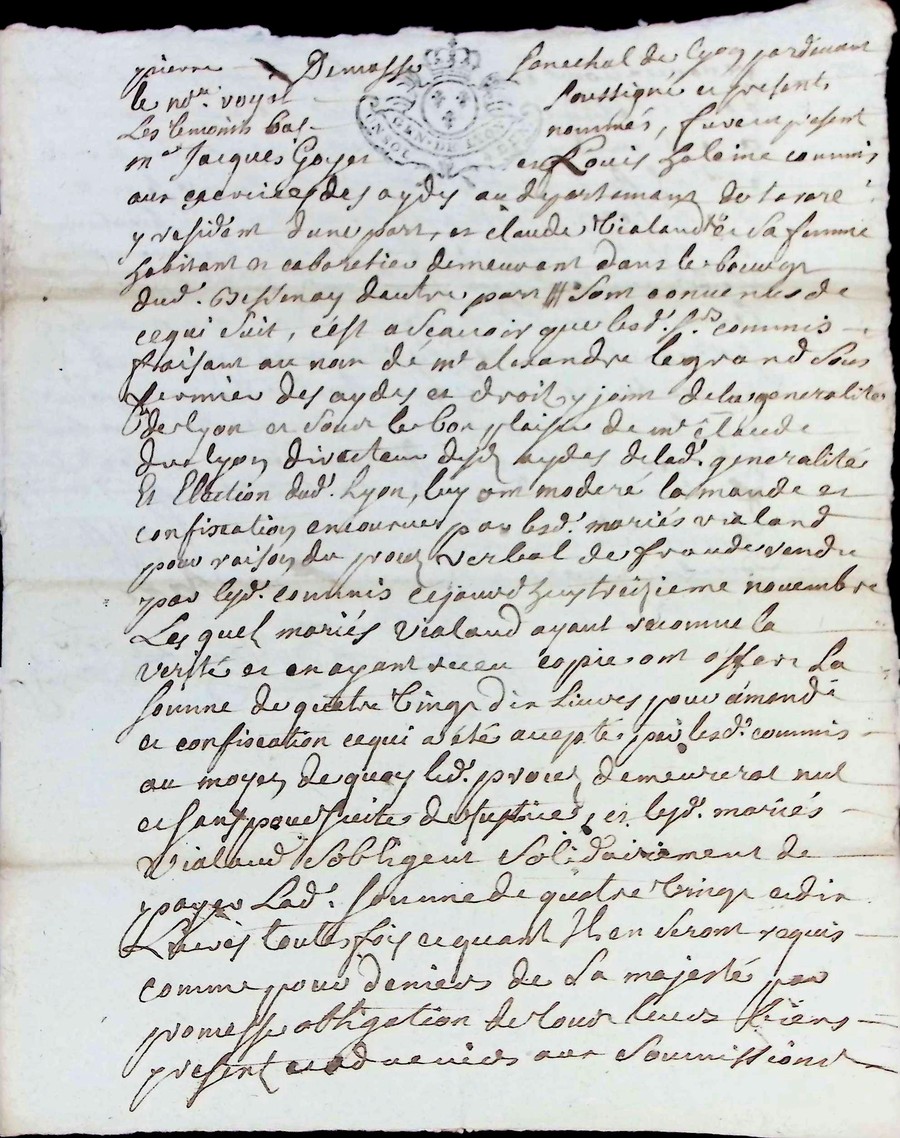 pierre Demasse senechal de lyon pardevant
le not.re royal soussigné et presents
Les temoins bas nommés, furent present
m.re Jacques Goyet et Louis haleine commis
aux exercices des aydes au departement de tarare
y residant d'une part, et claude Vialaud et sa femme
habitant et cabaretier demeurant dans le bourg
dud.t Bessenay d'autre part sont convenus de
ce qui suit, c'est a scavoir que lesd.t s.rs commis
faisant au nom de m.r alexandre le grand sous
fermier des aydes et droits y joint de la generalité
de lyon et sous le bon plaisir de m.r claude
directeur desd aydes de lad.t generalité
Et Election dud.t Lyon, luy ont moderé lamande et
confiscation encourue par lesd.t mariés vialaud
pour raison du proces verbal de fraude rendu
par lesd.t commis cejourd'huy treizieme novembre
Lesquels mariés Vialaud ayant reconnue la
verité et en ayant receu copie ont offert La
somme de quatre vingt dix Livres pour amande
et confiscation ce qui a été accepté par lesd.t commis
au moyen de quoy led.t proces demeurerat nul
et sans poursuites de justice, et lesd.t mariés
Vialaud s'obligent solidairement de
payer Lad.t somme de quatre vingt et dix
Livres toutes fois et quant Ils en seront requis
comme pour deniers de sa majesté par
promesse obligation de tous leurs biens
present et advenirs aux soumissions